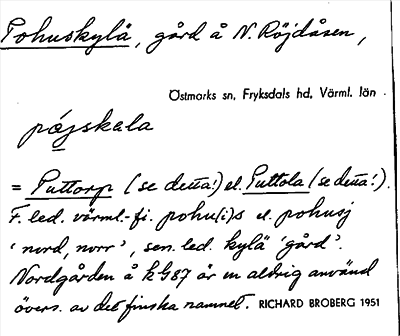 Pohuskylä, gård å N. Röjdåsen,
Östmarks sn, Fryksdals hd, Värml. län.
pǫjskala
= Puttorp (se detta!) el. Puttola (se detta!).
F. led. värml.-fi. pohu(i)s el. pohusj
'nord, norr', sen. led. kylä 'gård'.
Nordgården å kG87 är en aldrig använd
övers. av det finska namnet. RICHARD BROBERG 1951